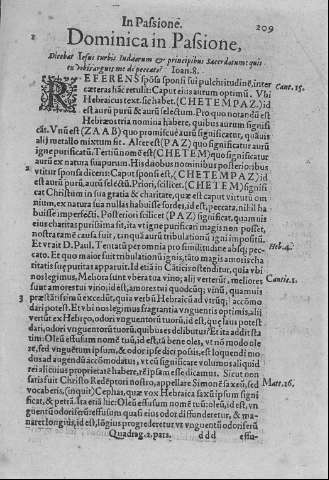 In Passione.
209
Dominica in Passione,
Dicebat Iesus turbis Iudaeorum & principibus Sacerdotum: quis
ex vobis arguet me de peccato? Ioan. 8.
REFERENS spōsa sponsi sui pulchritudinē, inter
caeteras hāc retulit: Caput eius aurum optimū. Vbi
Hebraicus text. sic habet. (CHETEM PAZ.) id
est aurū purū & aurū selectum. Pro quo notandū est
Hebraeos tria nomina habere, quibus aurum signifi
cāt. Vnū est (ZAAB) quo promiscuè aurū significatur, quāuis
alij metallo mixtum sit. Alter est (PAZ) quo significatur aurū
igne purificatū. Tertiū nomē est (CHETEM) quo significatur
aurū ex natura sua purum. His duobus nominibus posterioribus
vtitur sponsa dicens: Caput sponsi est, (CHETEM PAZ,) id
est, aurū purū, aurū selectū. Priori, scilicet. (CHETEM) signifi
cat Christum in sua gratia & charitate, quae est caput virtutū om
nium, ex natura sua nullas habuisse sordes, id est, peccata, nihil ha
buisse imperfecti. Posteriori scilicet (PAZ) significat, quamuis
eius charitas purissima sit, ita vt igne purificari magis non posset,
nostra tamē causa fuit, tanquā aurū tribulationū igni impositū.
Et vt ait D. Paul. Tentatū per omnia pro similitudine absq; pec
cato. Et quo maior fuit tribulationis ignis, tāto magis amoris cha
ritatis suae puritas apparuit. Id etiā in Cāticis ostenditur, quia vbi
nos legimus. Meliora sunt vbera tua vino; alij verterūt, meliores
sunt amores tui vino; id est, amores tui quodcūq; vinū, quamuis
praestātissimū excedūt, quia verbū Hebraicū ad vtrūq; accōmo
dari potest. Et vbi nos legimus fragrantia vnguentis optimis, alij
vertūt ex Hebraeo, odori vnguentorū tuorū, id est, quae laus potest
dari, odori vnguentorū tuorū, quibus es delibutus? Et ita addit sta
tim: Oleū effusum nomē tuū, id est, tā bene oles, vt nō modo ole
re, sed vnguētum ipsum, & odor ipse dici possis, est loquendi mo
dus ad augendū accōmodatus, vt cū significare volumus aliquid
rei alicuius proprietatē habere, rē ipsam esse dicamus. Sicut non
satis fuit Christo Redēptori nostro, appellare Simonē saxeū, sed
vocaberis, (inquit) Cephas, quae vox Hebraica saxū ipsum signi
ficat, & petrā. Ita etiā hic: Oleū effusum nomē tuū: oleū, id est, vn
guentū odoriferū effusum quasi eius odor diffunderetur, & ma
naret longius, id est, lōgius progrederetur vt vnguentū odoriferū
Quadrag. 2. pars.
ddd
effu-
Cant. 5.
Heb. 4.
Cantic. 1.
Matt. 16.
2
3